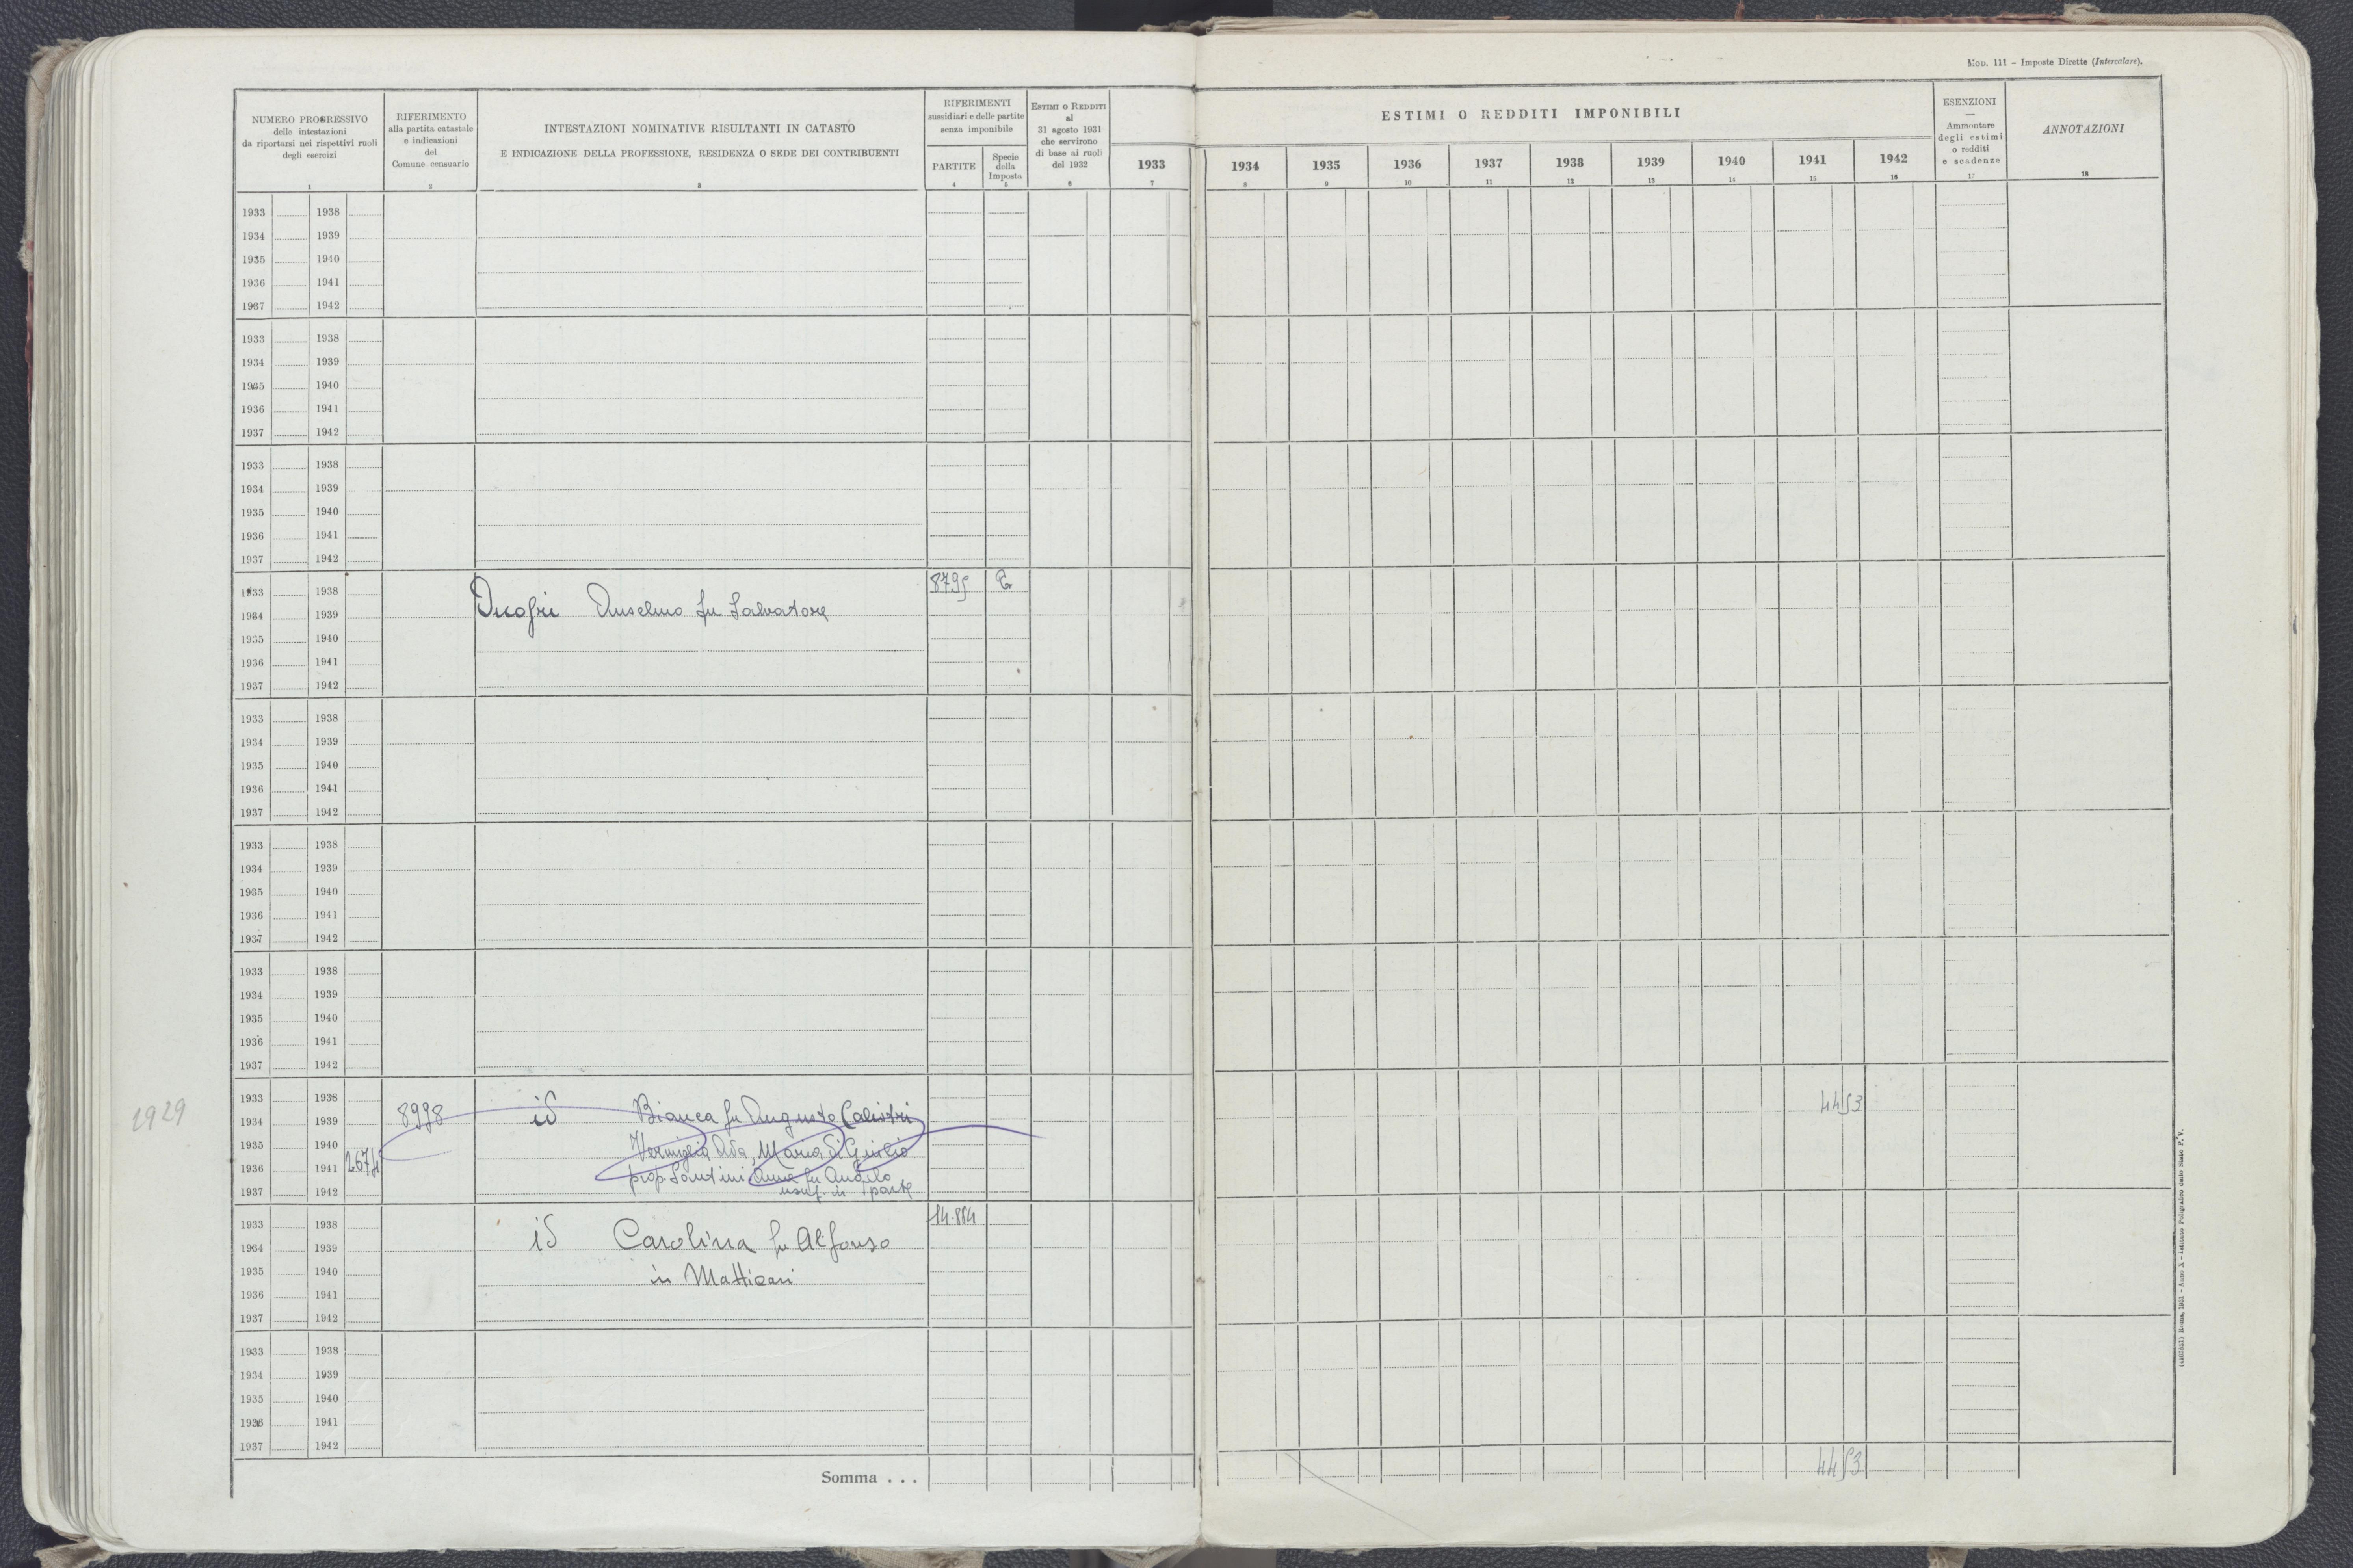 Mod. 111 - Imposte Dirette (Intercalare).
NUMERO PROGRESSIVO
delle intestazioni
da riportarsi nei rispettivi ruoli
degli esercizi
1
RIFERIMENTO
alla partita catastale
e indicazioni
del
Comune censuario
2
INTESTAZIONI NOMINATIVE RISULTANTI IN CATASTO
E INDICAZIONE DELLA PROFESSIONE, RESIDENZA O SEDE DEI CONTRIBUENTI
3
RIFERIMENTI
sussidiari e delle partite
senza imponibile
PARTITE
4
Specie
della
Imposta
5
ESTIMI O REDDITI
al
31 agosto 1931
che servirono
di base ai ruoli
del 1932
6
1933
7
ESTIMI O REDDITI IMPONIBILI
1934 1935 1936 1937 1938 1939 1940 1941 1942
8 9 10 11 12 13 14 15 16
ESENZIONI
Ammontare
degli estimi
o redditi
e scadenze
17
ANNOTAZIONI
18
1933 1938
1934 1939
1935 1940
1936 1941
1937 1942
1933 1938
1934 1939
1935 1940
1936 1941
1937 1942
1933 1938
1934 1939
1935 1940
1936 1941
1937 1942
1933 1938 8795
1934 1939 Onofri Anselmo fu Salvatore
1935 1940
1936 1941
1937 1942
1933 1938
1934 1939
1935 1940
1936 1941
1937 1942
1933 1938
1934 1939
1935 1940
1936 1941
1937 1942
1933 1938
1934 1939
1935 1940
1936 1941
1937 1942
1929
1933 1938 4453
1934 1939 8998 id Bianca fu Augusto Calistri
1935 1940 Vermiglia Ada, Maria di Giulio
1936 1941 2674 prop. Santini Anna fu Angelo
1937 1942 usuf. in parte
1933 1938 14.884
1934 1939 id Carolina fu Alfonso
1935 1940 in Matticari
1936 1941
1937 1942
1933 1938
1934 1939
1935 1940
1936 1941
1937 1942
Somma . . . 4453